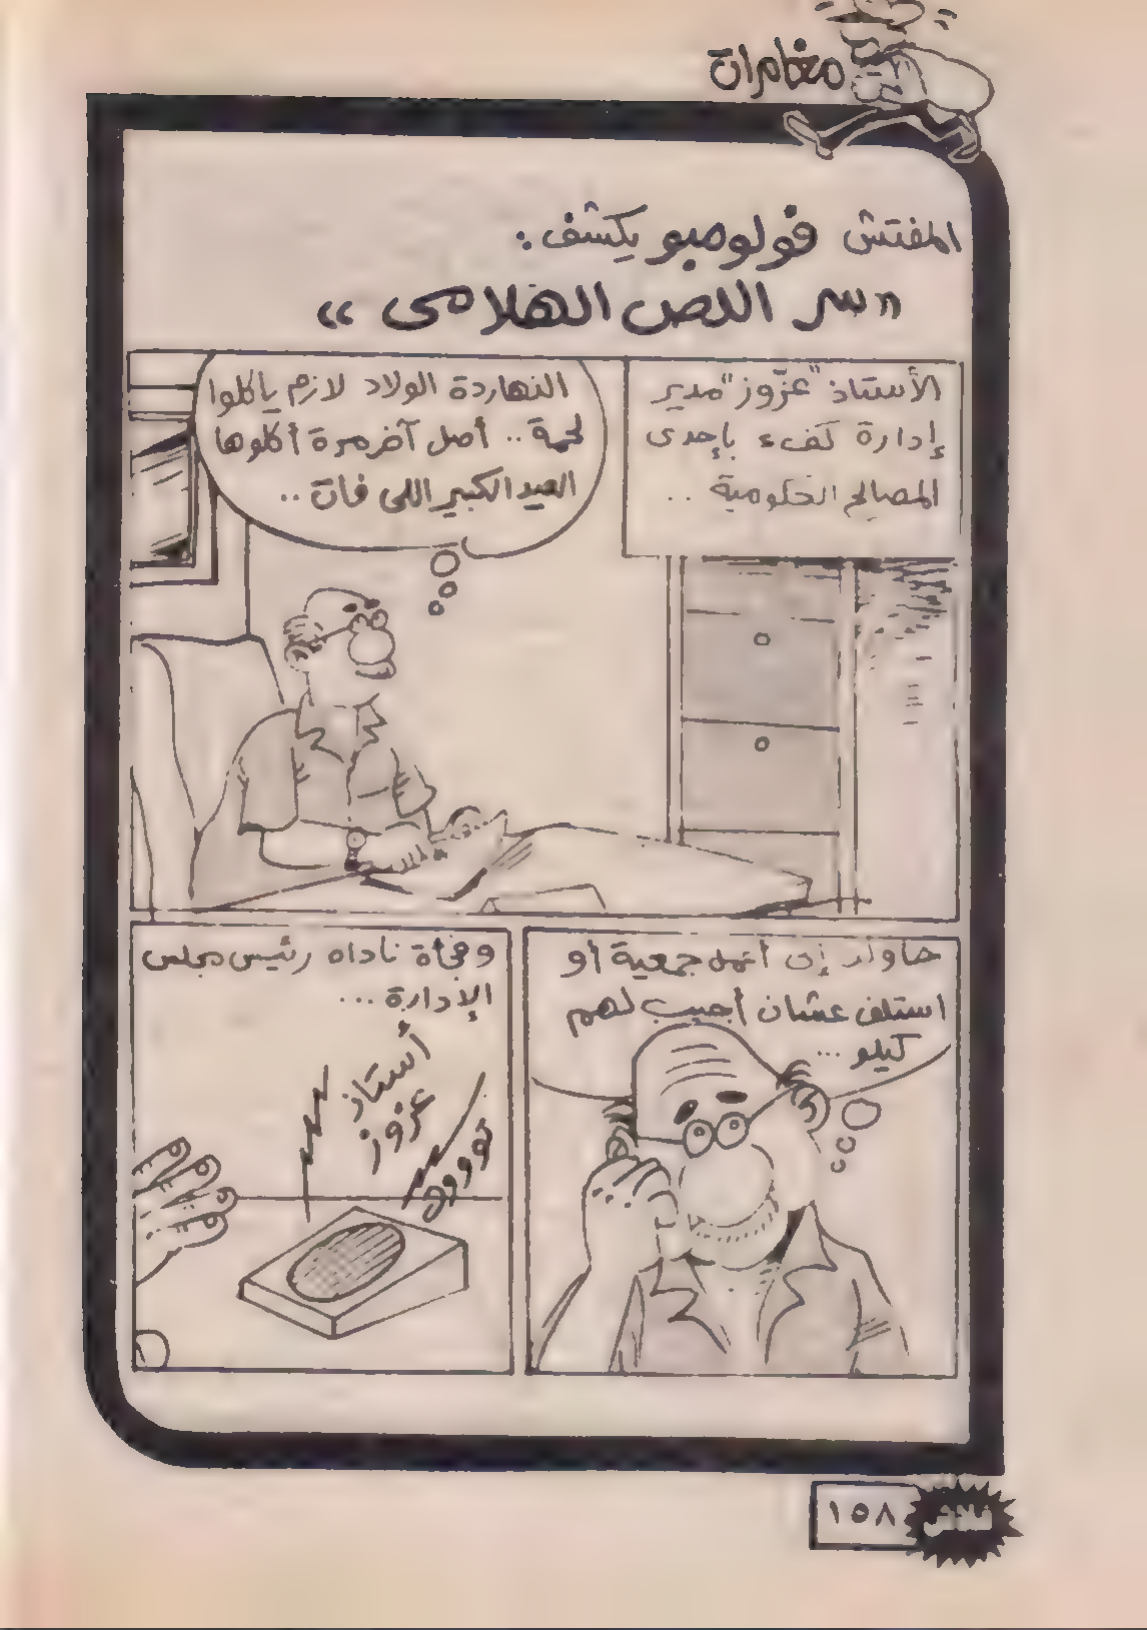 مغامرات
المفتش فولومبو يكشف:
«سر اللص الهلامى»
الأستاذ "عزّوز" مدير
إدارة كفء بإحدى
المصالح الحكومية ..
النهاردة الولاد لازم ياكلوا
لحمة .. أصل آخر مرة أكلوها
العيد الكبير اللى فات ..
حاول إن أعمل جمعية أو
استلف عشان أجيب لهم
كيلو ...
وفجأة ناداه رئيس مجلس
الإدارة ...
أستاذ
عزوز
١٥٨
فلاش